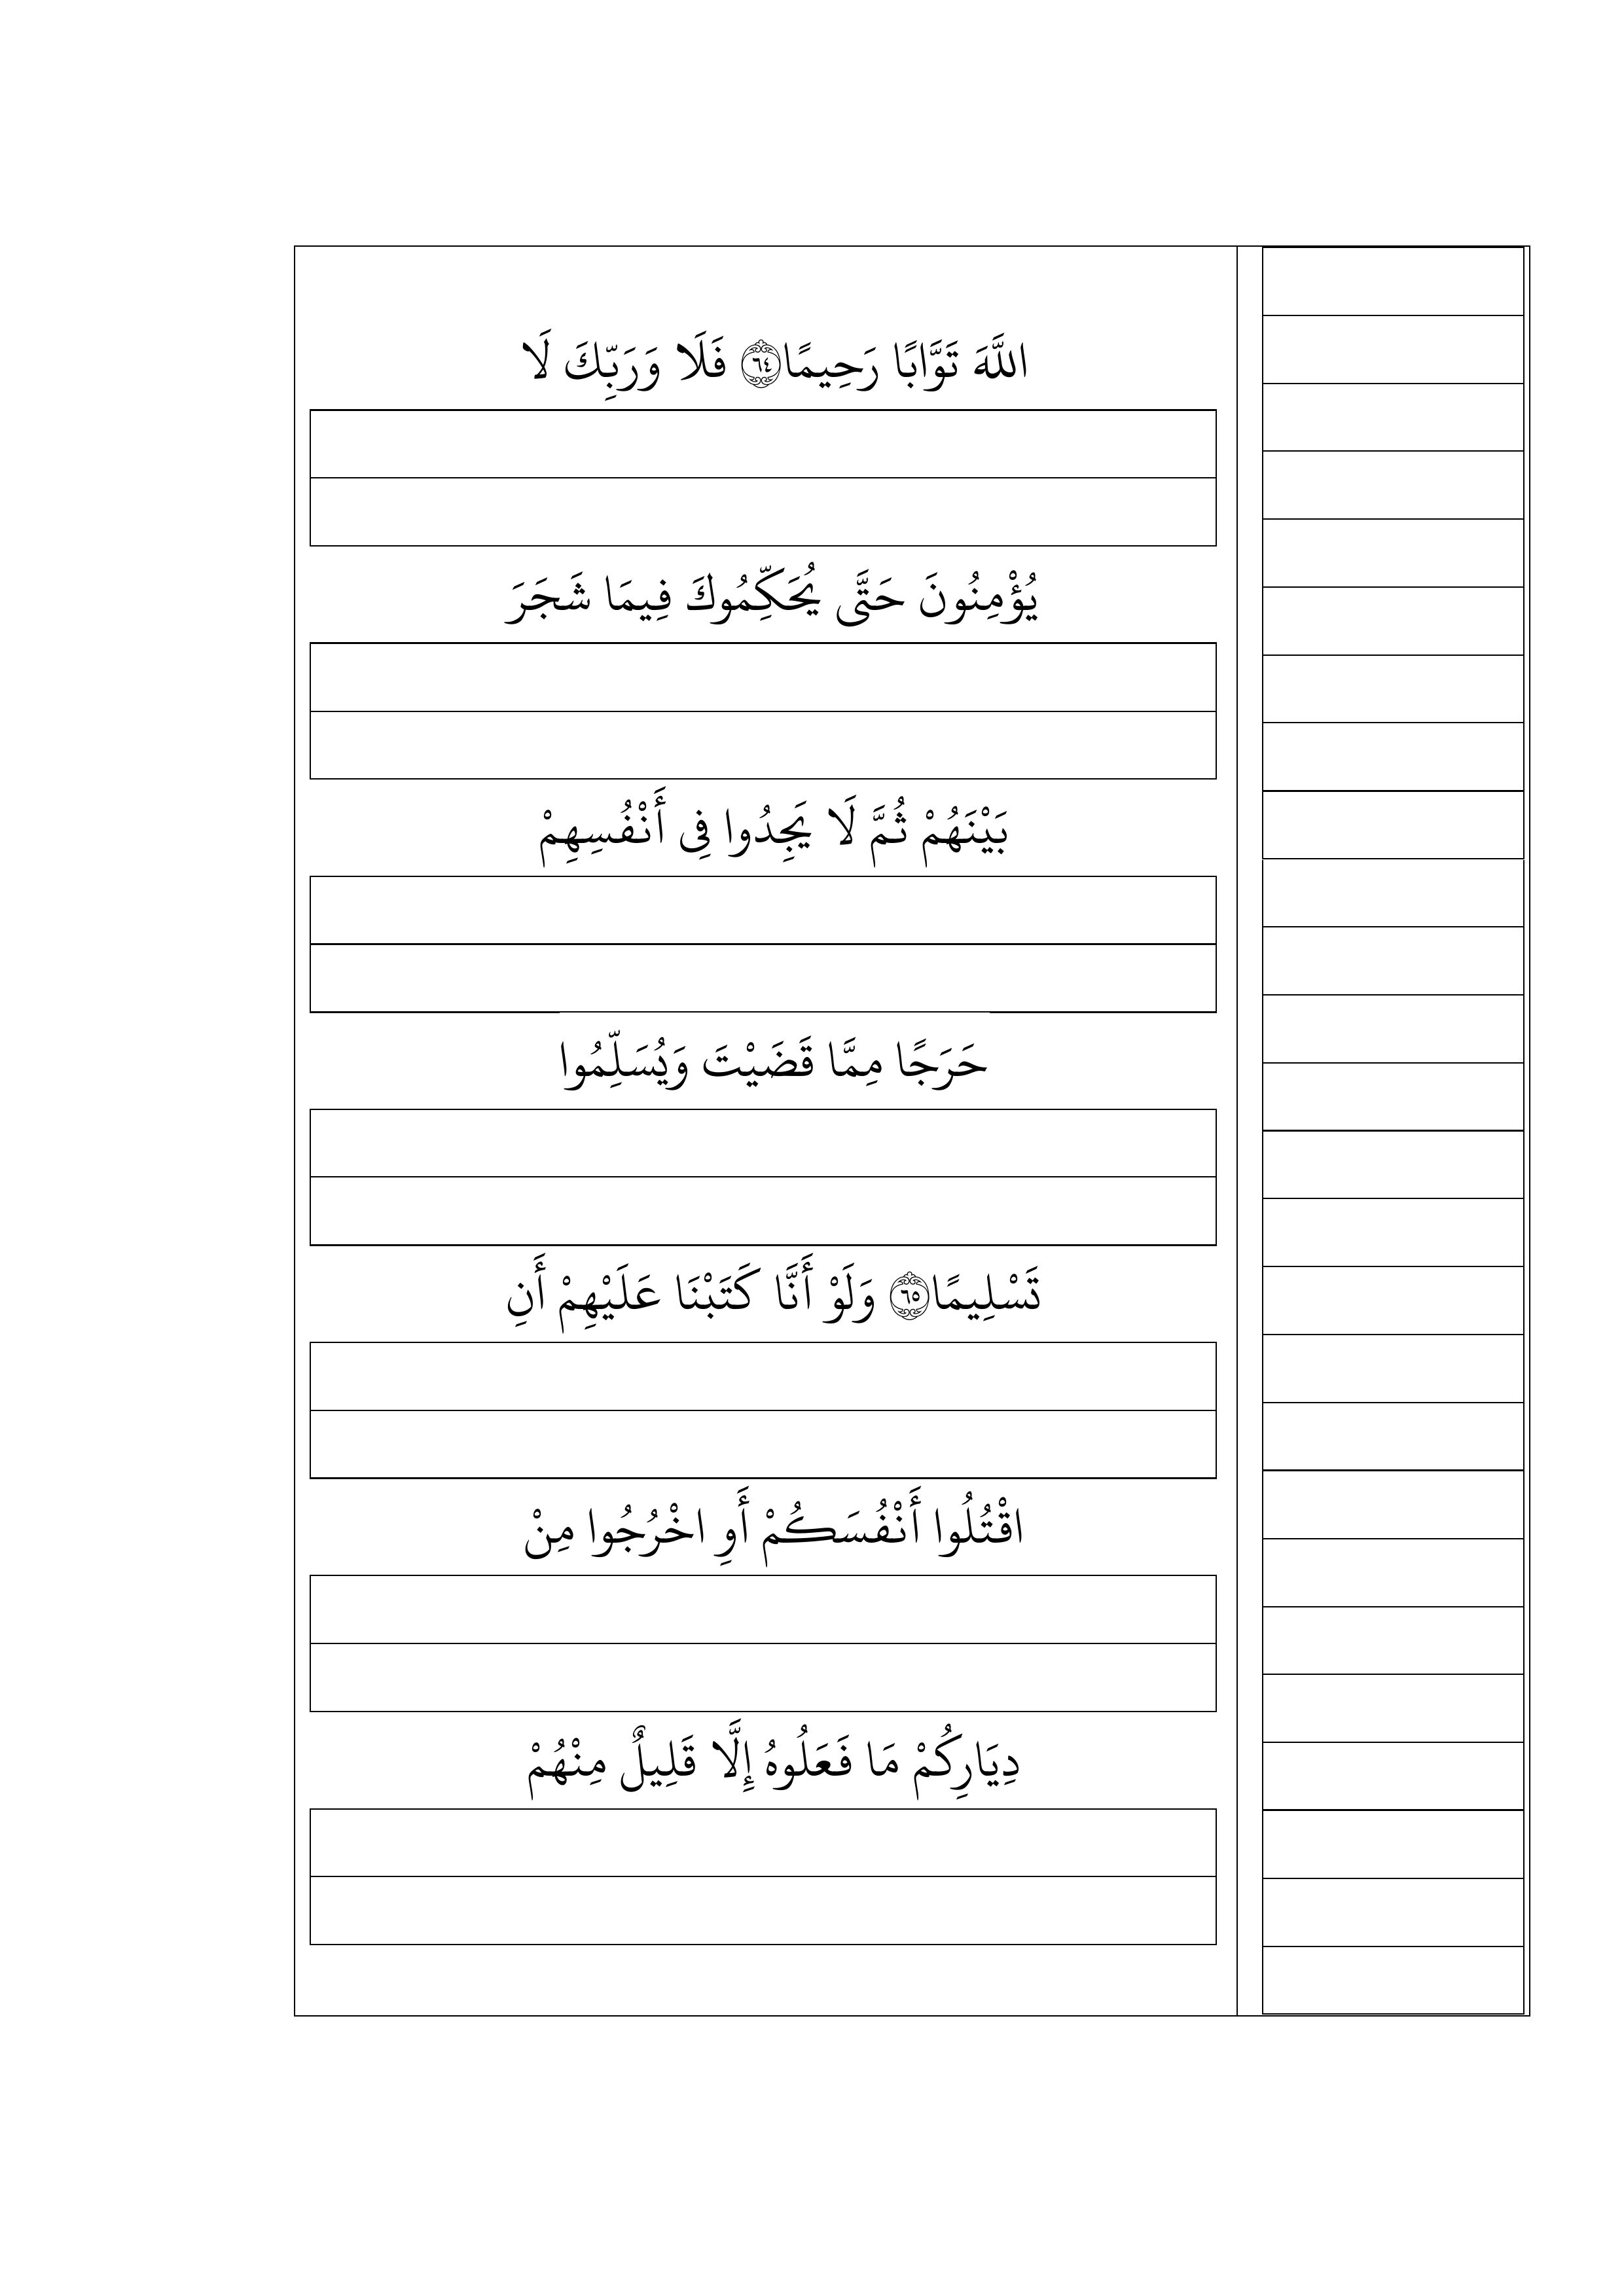 اللَّهَ تَوَّابًا رَحِيمًا ٦٤ فَلَا وَرَبِّكَ لَا
يُؤْمِنُونَ حَتَّى يُحَكِّمُوكَ فِيمَا شَجَرَ
بَيْنَهُمْ ثُمَّ لَا يَجِدُوا فِى أَنْفُسِهِمْ
حَرَجًا مِمَّا قَضَيْتَ وَيُسَلِّمُوا
تَسْلِيمًا ٦٥ وَلَوْ أَنَّا كَتَبْنَا عَلَيْهِمْ أَنِ
اقْتُلُوا أَنْفُسَكُمْ أَوِ اخْرُجُوا مِنْ
دِيَارِكُمْ مَا فَعَلُوهُ إِلَّا قَلِيلٌ مِنْهُمْ